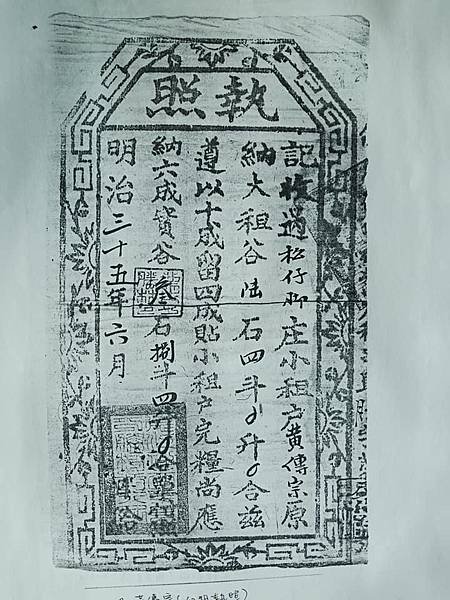 執照
記收過松仔脚庄小租戶黃傳宗原
納大租谷陸石四斗〇升〇合茲
遵以十成留四成貼小租戶完糧尚應
納六成實谷叁石捌斗四升〇合
明治三十五年六月